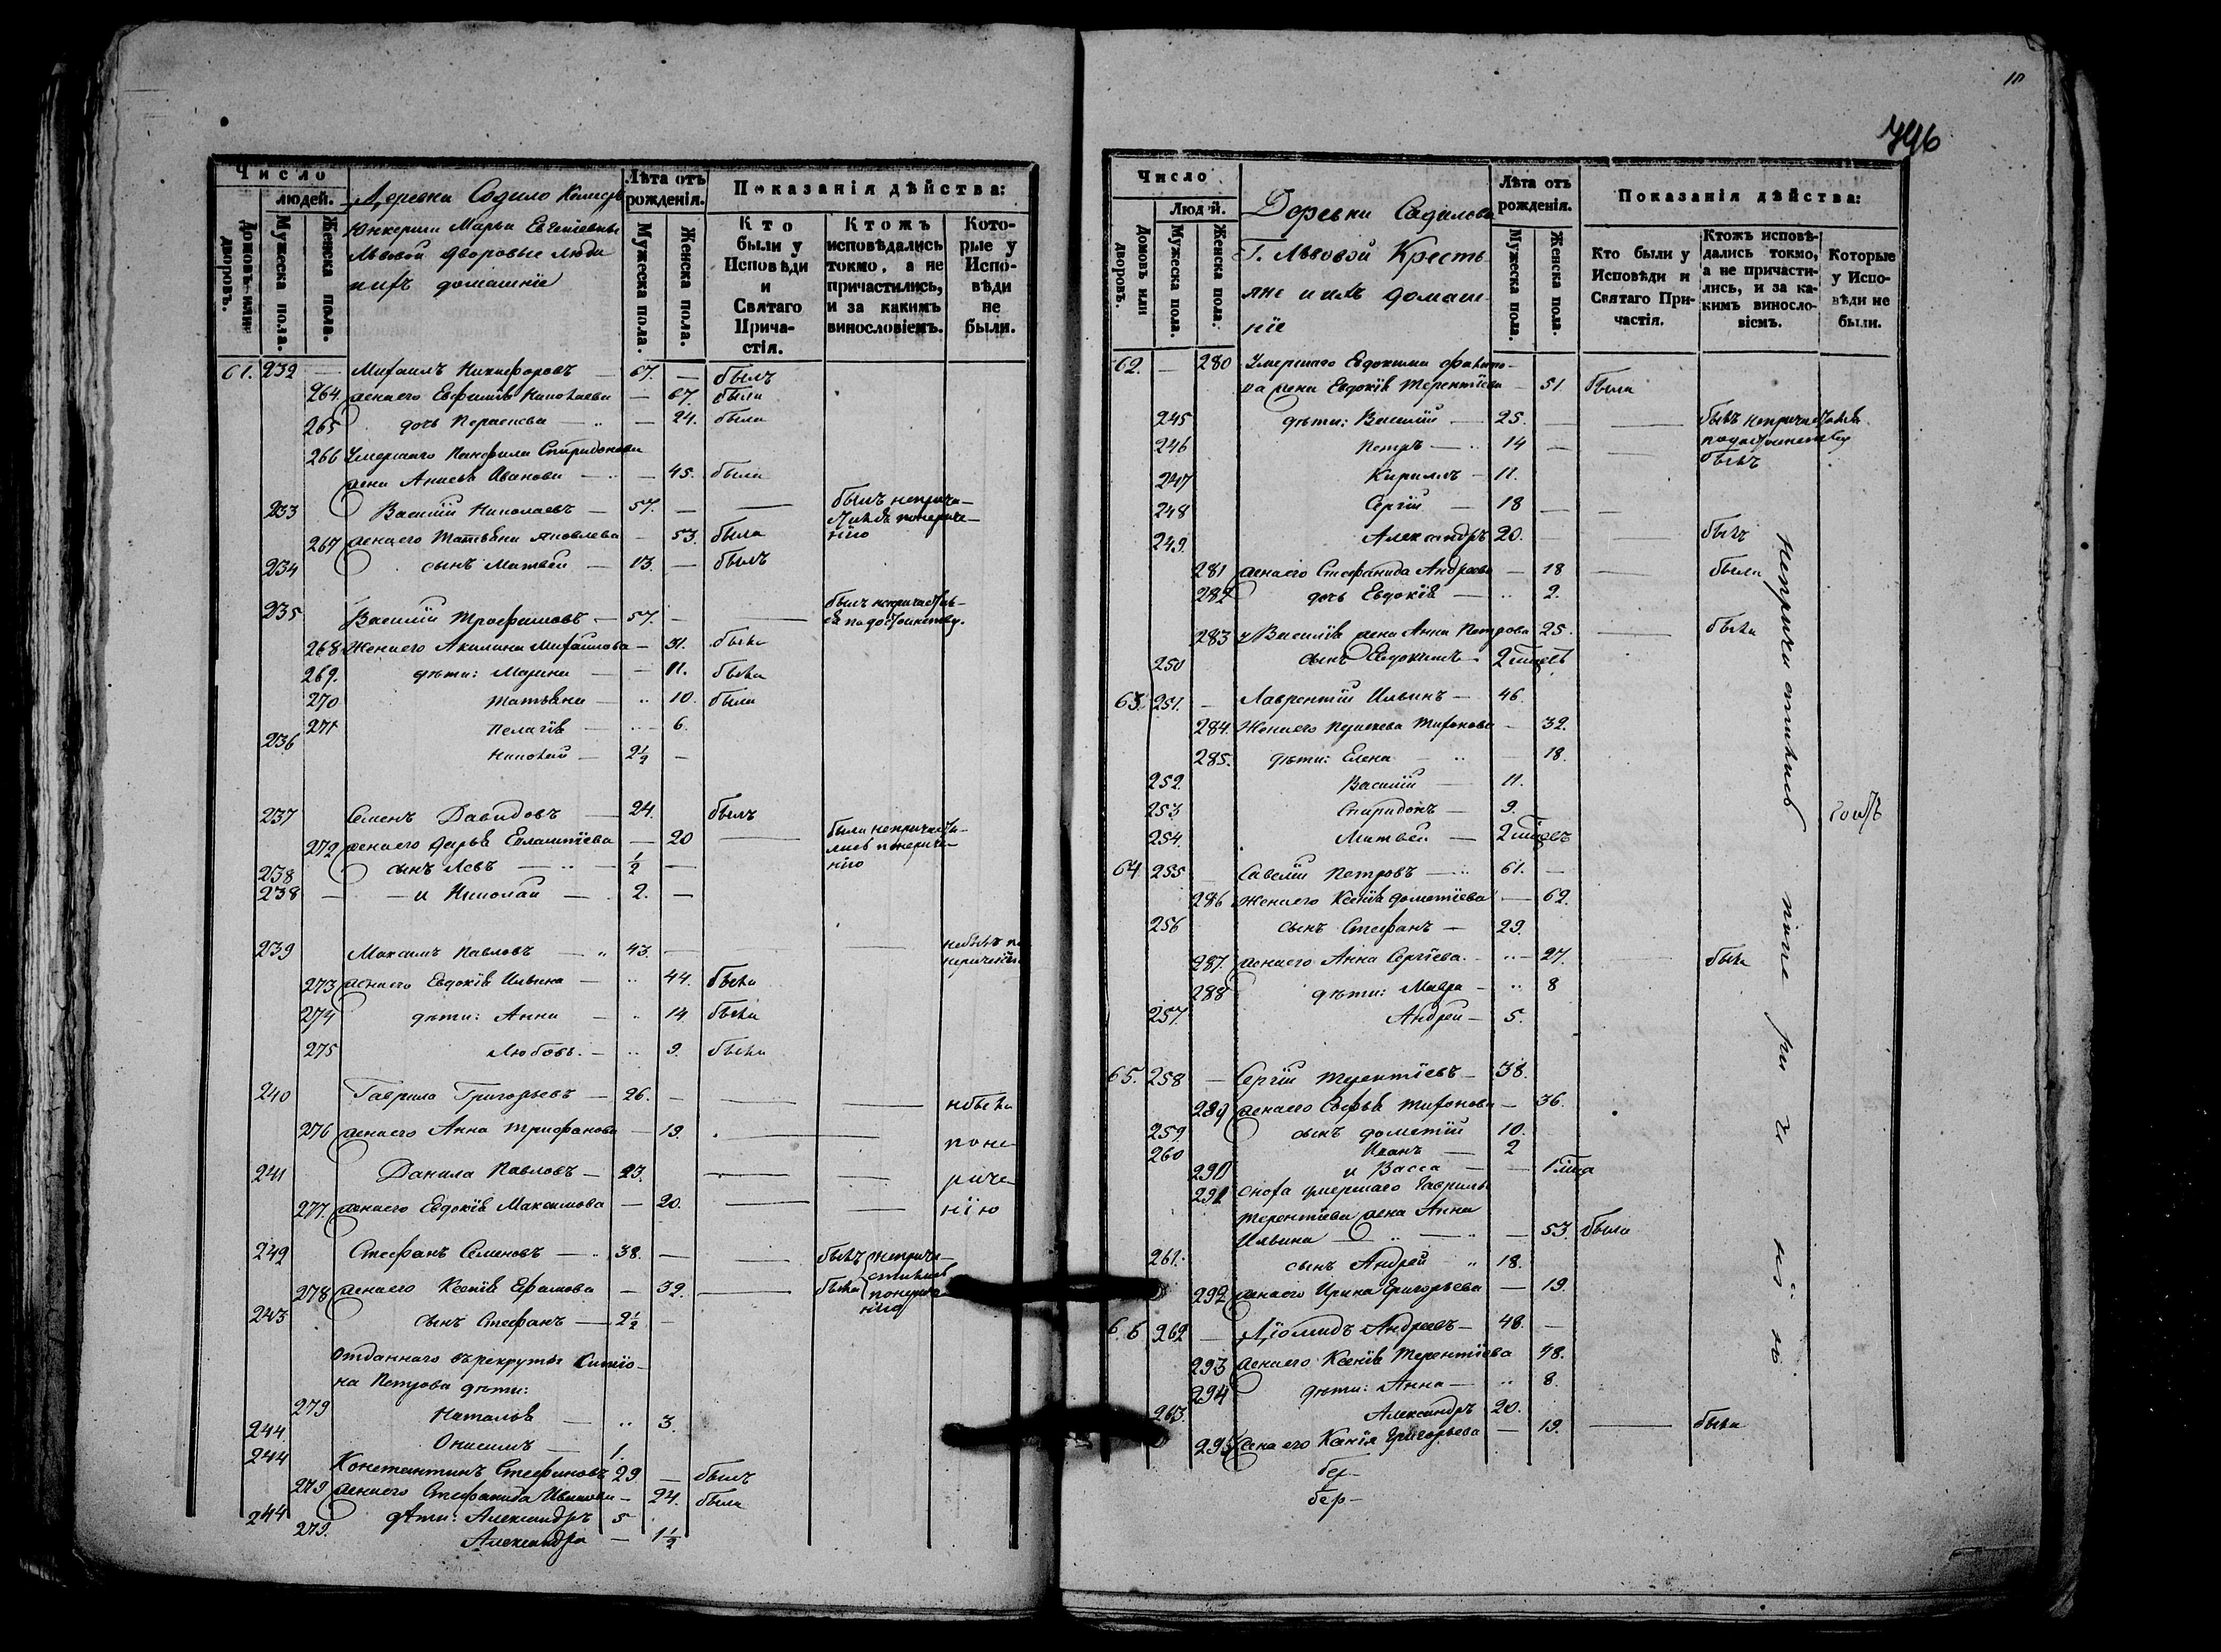 Число
людей.
Домовъ или дворовъ.
Мужеска пола.
Женска пола.
Деревни Садило
Юнкерши Марьи Евгеніевны
Львовой дворовые люди
и ихъ домашніе
Лѣта отъ рожденія.
Мужеска пола.
Женска пола.
Показанія дѣйства:
Кто были у Исповѣди и Святаго Причастія.
Ктожъ исповѣдались токмо, а не причастились, и за какимъ винословіемъ.
Которые у Исповѣди не были.
61. 232 — Михаилъ Никифоровъ — 67. — былъ
264. жена его Евфимія Николаева — 67. была
265 дочь Парасковья — 24. была
266 Умершаго Панфила Спиридонова
жена Анисья Иванова — 45. была
233 Василій Николаевъ — 57. — былъ неприча-
стился понераче-
267 жена его Татьяна Яковлева — 53. была нію
234 сынъ Матвей — 13. — былъ
235 Василій Трофимовъ — 57. — былъ непричастил-
ся
268 Жена его Акилина Михайлова — 31. была
269. дѣти: Марина — 11. была
270 Татьяна — 10. была
271 Пелагія — 6.
236 Николай — 2½ —
237 Семенъ Давидовъ — 24. былъ
272 жена его Дарья — 20 — была непричасти-
лись понераче-
238 сынъ Левъ — ½ — нію
238 — и Николай — 2. —
239 Максимъ Павловъ — 43. — небылъ по
нераченію
273 жена его Евдокія Ильина — 44. была
274 дѣти: Анна — 14 была
275 Любовь. — 9. была
240 Гаврила Григорьевъ — 26. — небыли
276 жена его Анна Трифанова — 19. — поне-
241 Данила Павловъ — 23. — раче-
277. жена его Евдокія Максимова — 20. — нію
242 Стефанъ Семеновъ — 38. — былъ неприча-
стились
278 жена его Ксенія Ефимова — 32. — была понераче-
нію
243 сынъ Стефанъ — 2½ —
Отданнаго въ рекруты
на Петрова дѣти:
279 Наталья — 3.
244 Онисимъ — 1.
244 Константинъ Стефановъ 29 — былъ
279 жена его Стефанида Иванова — 24. была
244 дѣти: Александръ 5
279. Александра — 1½
796
Число
Людей.
Домовъ или дворовъ.
Мужеска пола.
Женска пола.
Деревни Садилова
Г. Львовой Кресть-
яне и ихъ домаш-
ніе
Лѣта отъ рожденія.
Мужеска пола.
Женска пола.
Показанія дѣйства:
Кто были у Исповѣди и Святаго Причастія.
Ктожъ исповѣдались токмо, а не причастились, и за какимъ винословіемъ.
Которые у Исповѣди не были.
62. — 280 Умершаго Евдокима
жена Евдокія Терентіева — 51 была
245 дѣти: Василій — 25. — былъ непричастился
246 Петръ — 14 —
былъ
247 Кириллъ — 11.
248 Сергій — 18 —
249. Александръ 20. — былъ
281 жена его Стефанида Андреева — 18 — была
282 дочь Евдокія — 2.
283 у Василія жена Анна Петрова 25. — была
250 сынъ Евдокимъ — 2
63. 251. — Лаврентій Ильинъ — 46.
284. Жена его — 32.
285. дѣти: Елена — 18.
252. Василій — 11.
253 Спиридонъ — 9.
254. Матвей — 2
64 255 — Савелій Петровъ — 61. —
286 жена его Ксенія Дометіева — 62.
256 сынъ Стефанъ — 29.
287. жена его Анна Сергіева. — 27. — была
288 дѣти: Мавра — 8
257. Андрей — 5.
65. 258 — Сергій Терентіевъ — 38.
289 жена его Софья — 36.
259. сынъ Дометій 10.
260 Иванъ — 2
290 и Васса — 1
291 сноха умершаго Гаврилы
Терентіева жена Анна
Ильина — 53 была
261. сынъ Андрей 18.
292 жена его Ирина Григорьева — 19.
66 262 — Діомидъ Андреевъ — 48. —
293 жена его Ксенія Терентіева 48.
294 дѣти: Анна — 8.
263. Александръ 20.
295 жена его Ксенія Григорьева — 19. — была
непричастились поне ра че ні ю